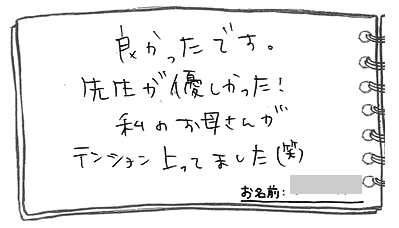 良かったです。
先生が優しかった!
私のお母さんが
テンション上ってました(笑)
お名前: